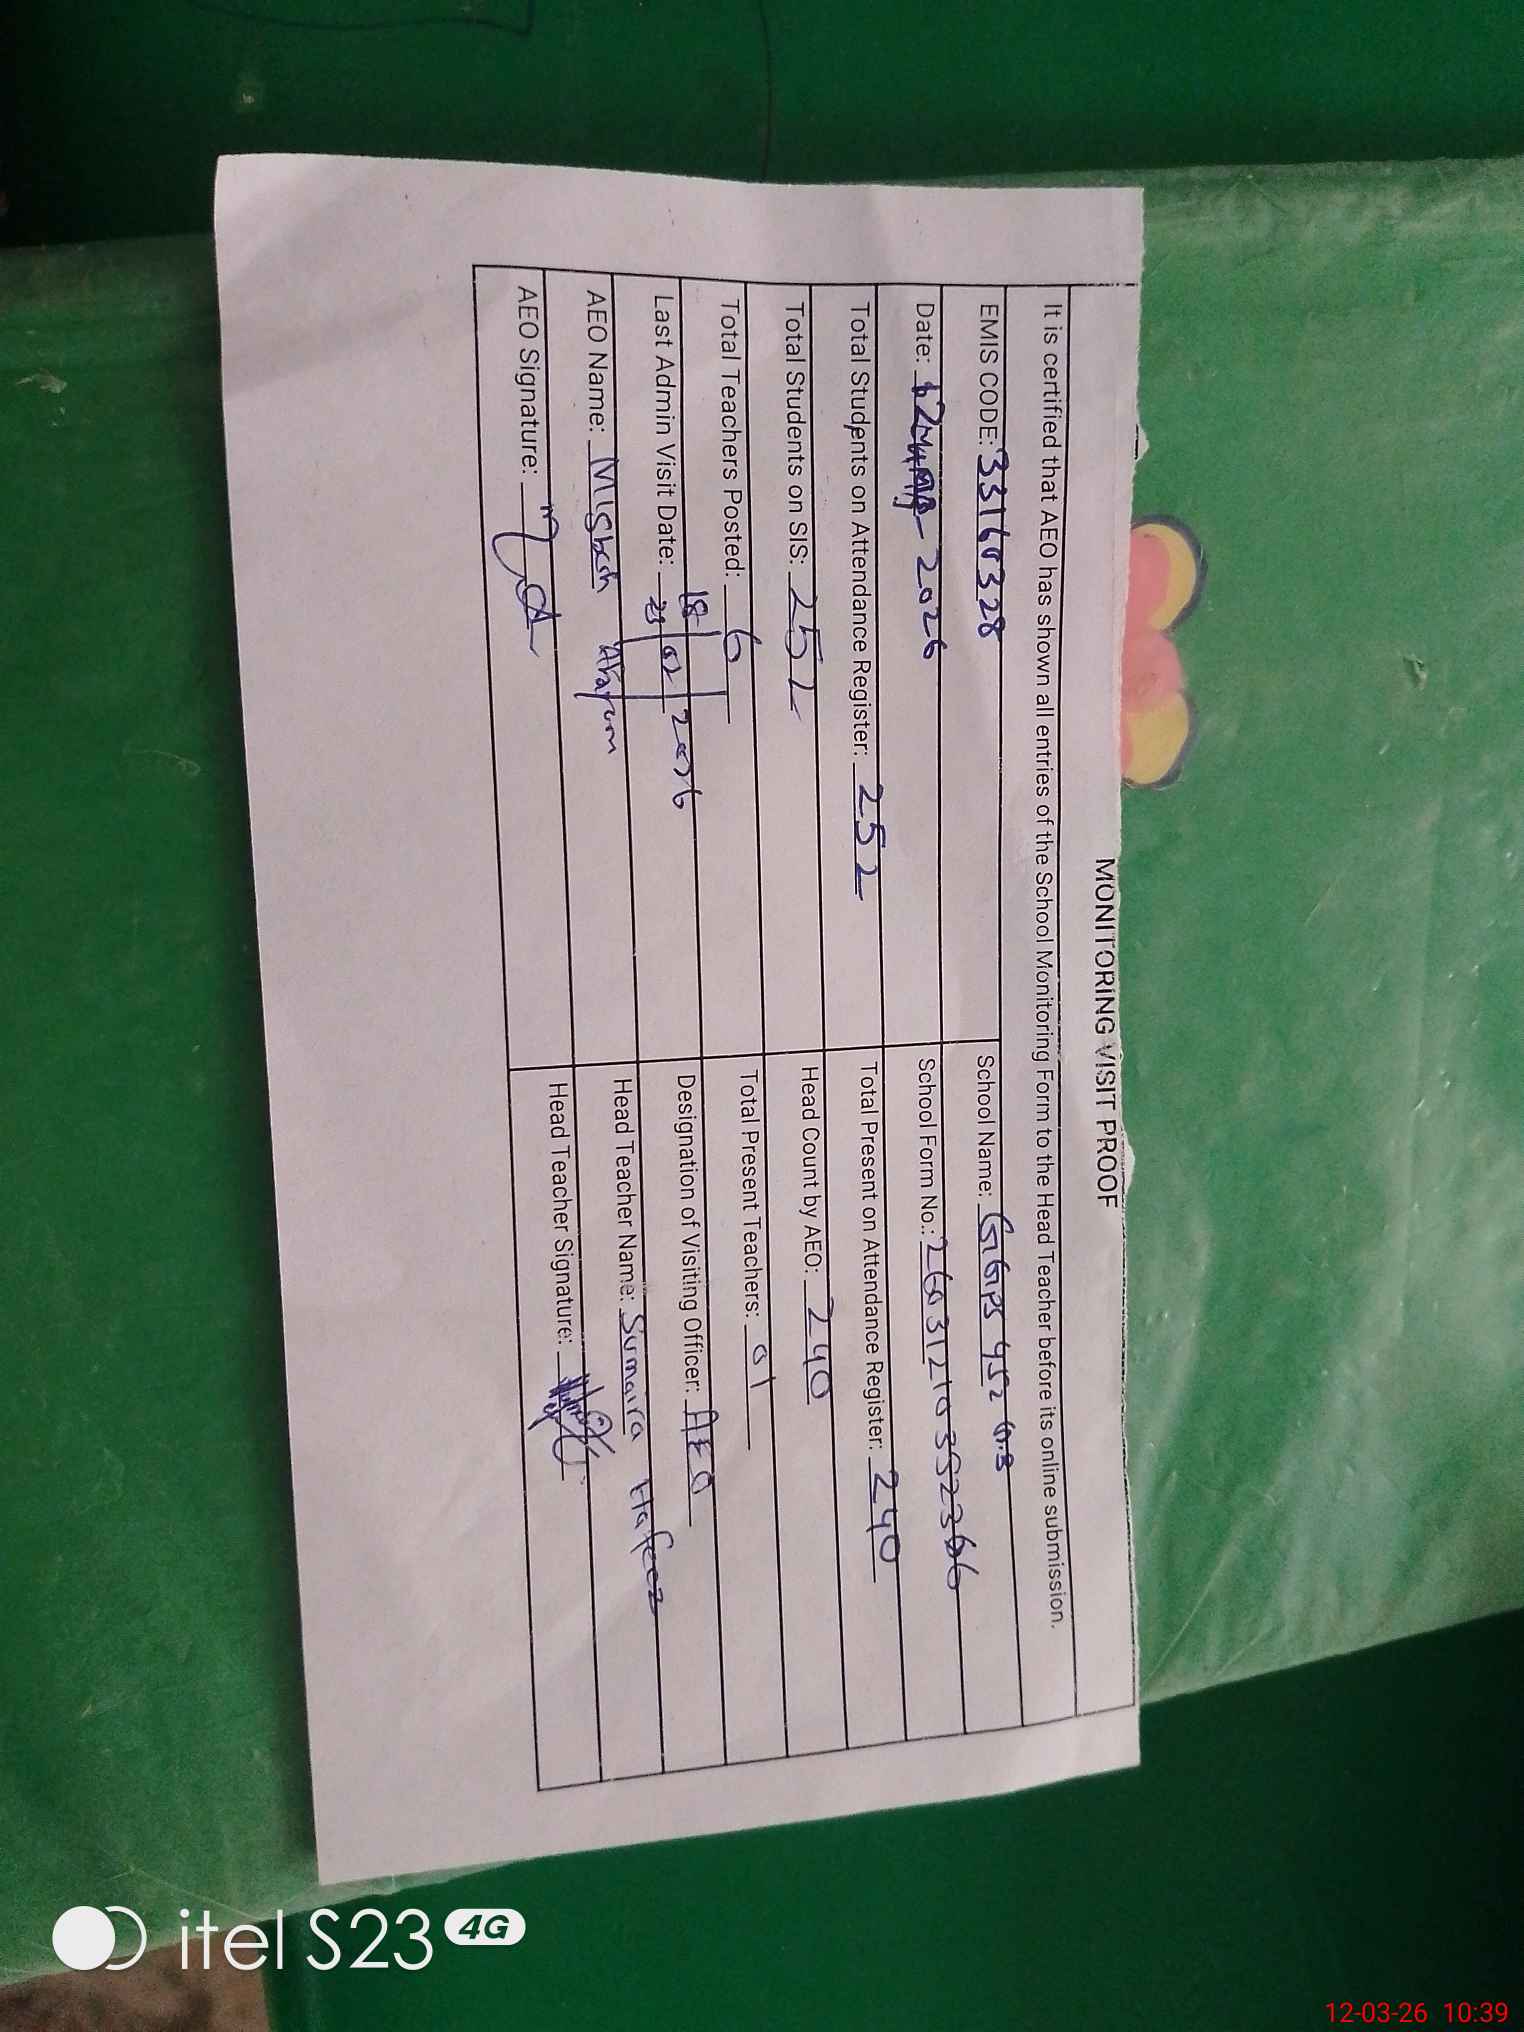 MONITORING VISIT PROOF
It is certified that AEO has shown all entries of the School Monitoring Form to the Head Teacher before its online submission.
EMIS CODE: 33160328
School Name: GGPS 452 G.B
Date: 12 - 2026
School Form No.:
Total Students on Attendance Register: 252
Total Present on Attendance Register: 240
Total Students on SIS: 252
Head Count by AEO: 240
Total Teachers Posted: 6
Total Present Teachers: 01
Last Admin Visit Date: 02 2026
Designation of Visiting Officer: AEO
AEO Name: Misbah Akram
Head Teacher Name: Sumaira Hafeez
AEO Signature:
Head Teacher Signature:
itel S23 4G
12-03-26 10:39